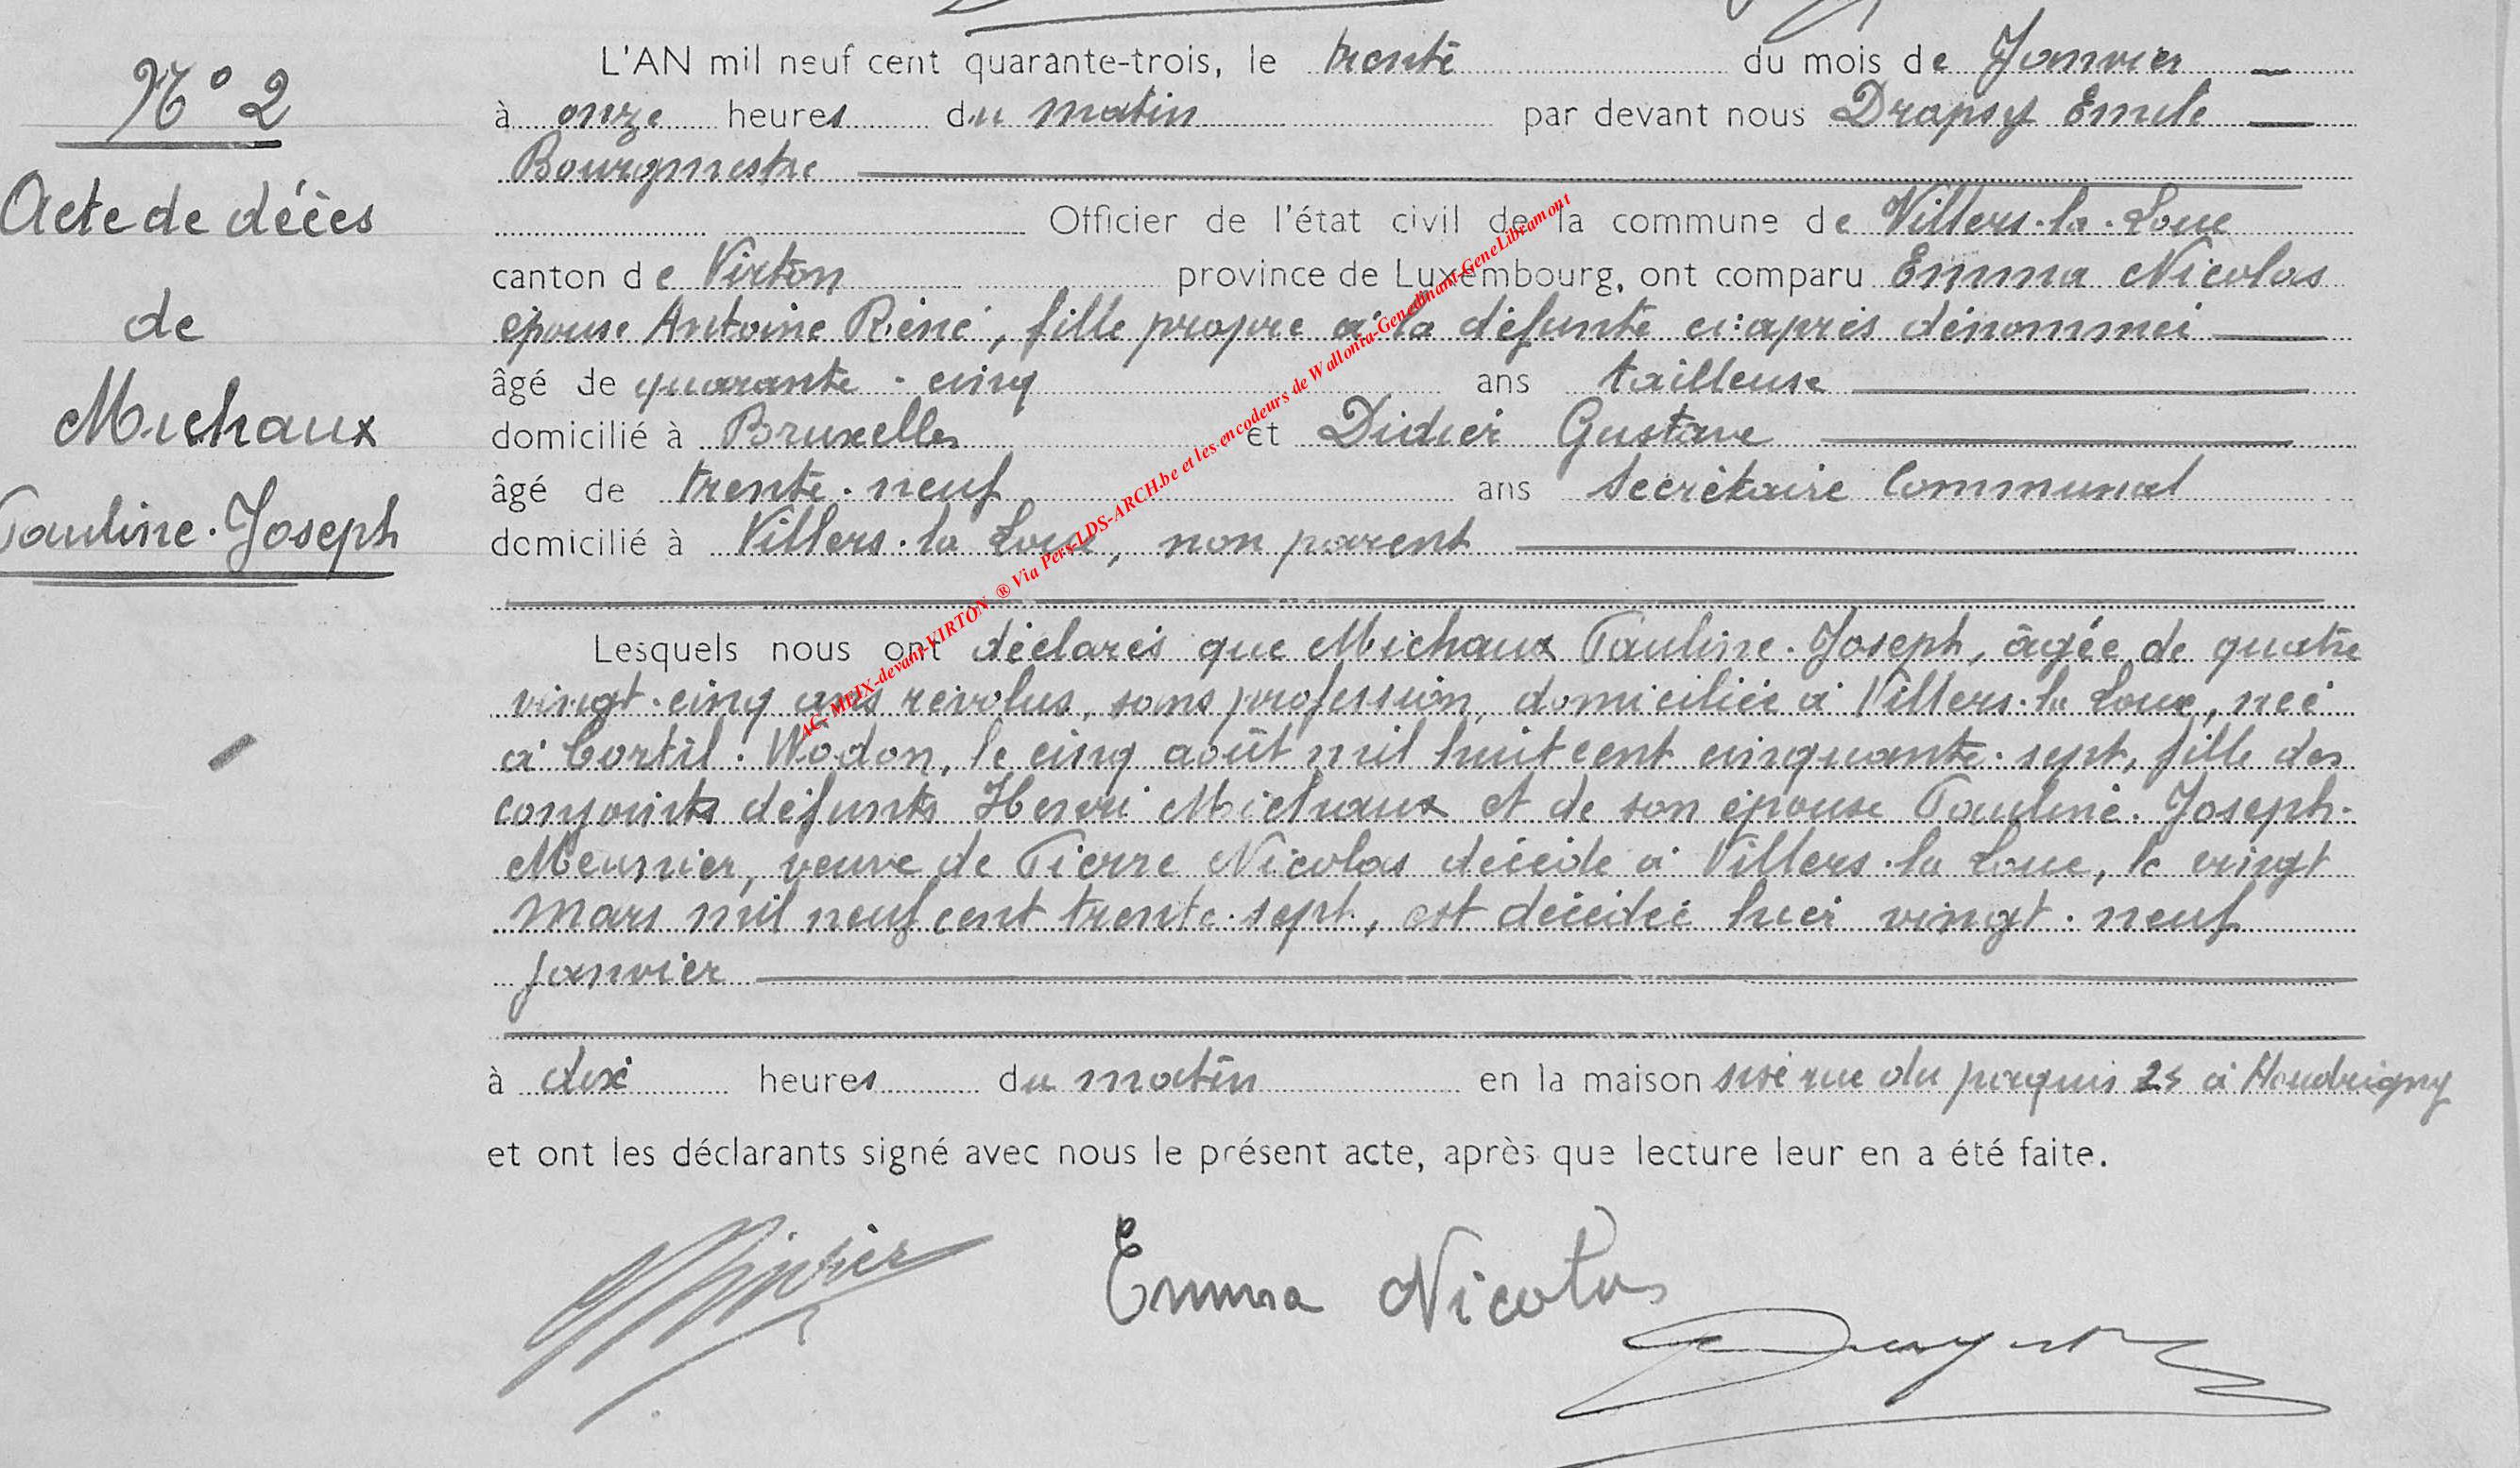 N° 2
Acte de décès
de
Michaux
Pauline-Joseph
L'AN mil neuf cent quarante-trois, le trente du mois de Janvier
à onze heures du matin par devant nous Drapsy Emile
Bourgmestre
Officier de l'état civil de la commune de Villers-la-Loue
canton de Virton province de Luxembourg, ont comparu Emma Nicolas
épouse Antoine Réné, fille propre à la défunte ci-après dénommée
âgé de quarante-cinq ans tailleuse
domicilié à Bruxelles et Didier Gustave
âgé de trente-neuf ans Secrétaire Communal
domicilié à Villers-la Loue, non parent
Lesquels nous ont déclarés que Michaux Pauline-Joseph, âgée de quatre
vingt-cinq ans révolus, sans profession, domiciliée à Villers-la Loue, née
à Cortil-Wodon, le cinq août mil huit cent cinquante-sept, fille des
conjoints défunts Henri Michaux et de son épouse Pauline-Joseph-
Meunier, veuve de Pierre Nicolas décédé à Villers-la Loue, le vingt
mars mil neuf cent trente-sept, est décédée hier vingt-neuf
janvier
à dix heures du matin en la maison sise rue du paquis 25 à Houdrigny
et ont les déclarants signé avec nous le présent acte, après que lecture leur en a été faite.
Didier Emma Nicolas
AC- MEIX-devant-VIRTON ® Via Pers-LDS-ARCH.be et les encodeurs de Wallonia-GeneDinant-GeneLibramont